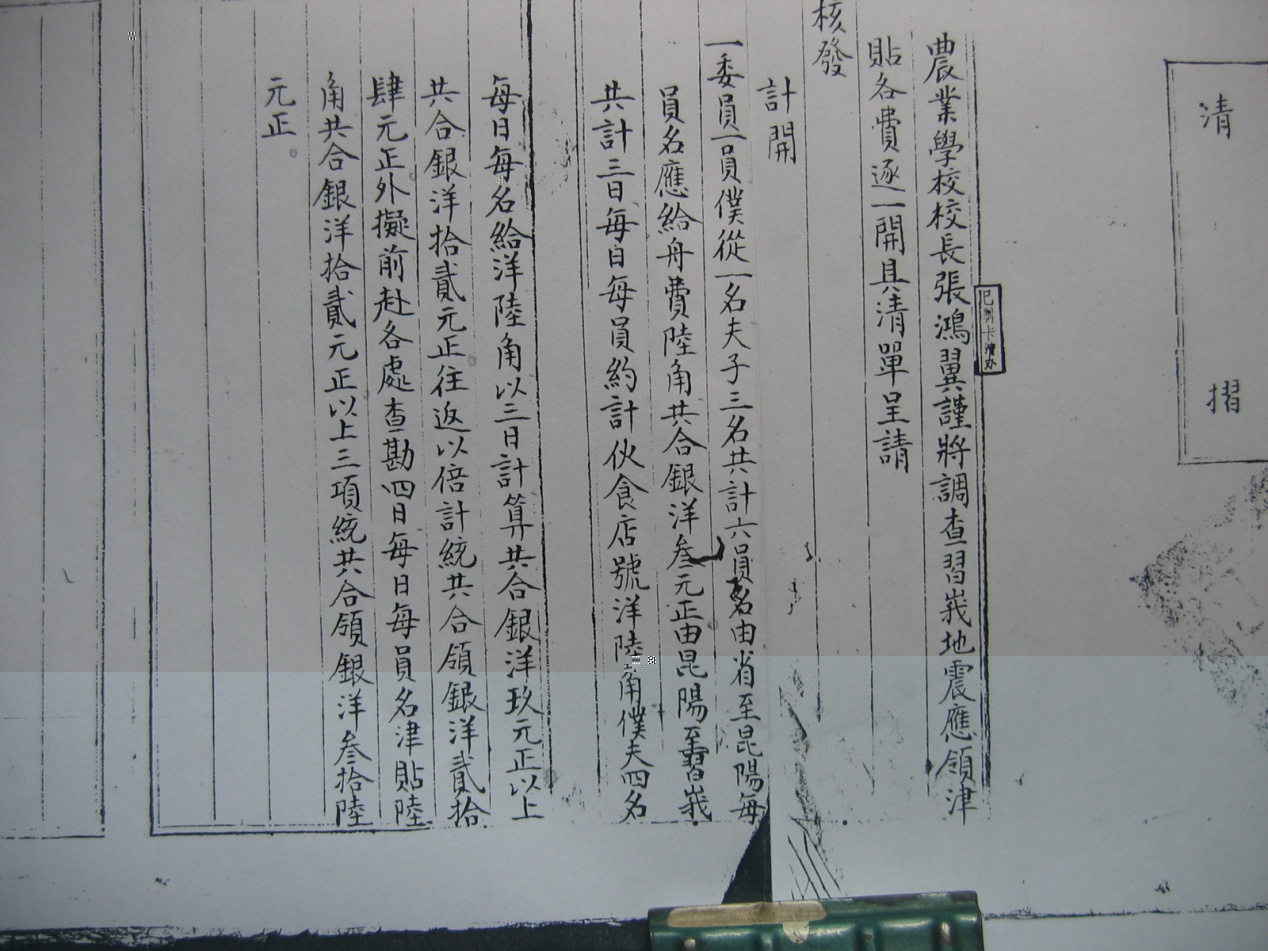 清摺
農業學校校長張鴻翼謹將調查習峩地震應領津
貼各費逐一開具清單呈請
核發
計開
一委員一員僕從一名夫子三名共計六員名由省至昆陽每
員名應給舟費陸角共合銀洋叁元正由昆陽至習峩
共計三日每日每員約計伙食店號洋陸角僕夫四名
每日每名給洋陸角以三日計算共合銀洋玖元正以上
共合銀洋拾貳元正往返以倍計統共合領銀洋貳拾
肆元正外擬前赴各處查勘四日每日每員名津貼陸
角共合銀洋拾貳元正以上三項統共合領銀洋叁拾陸
元正。